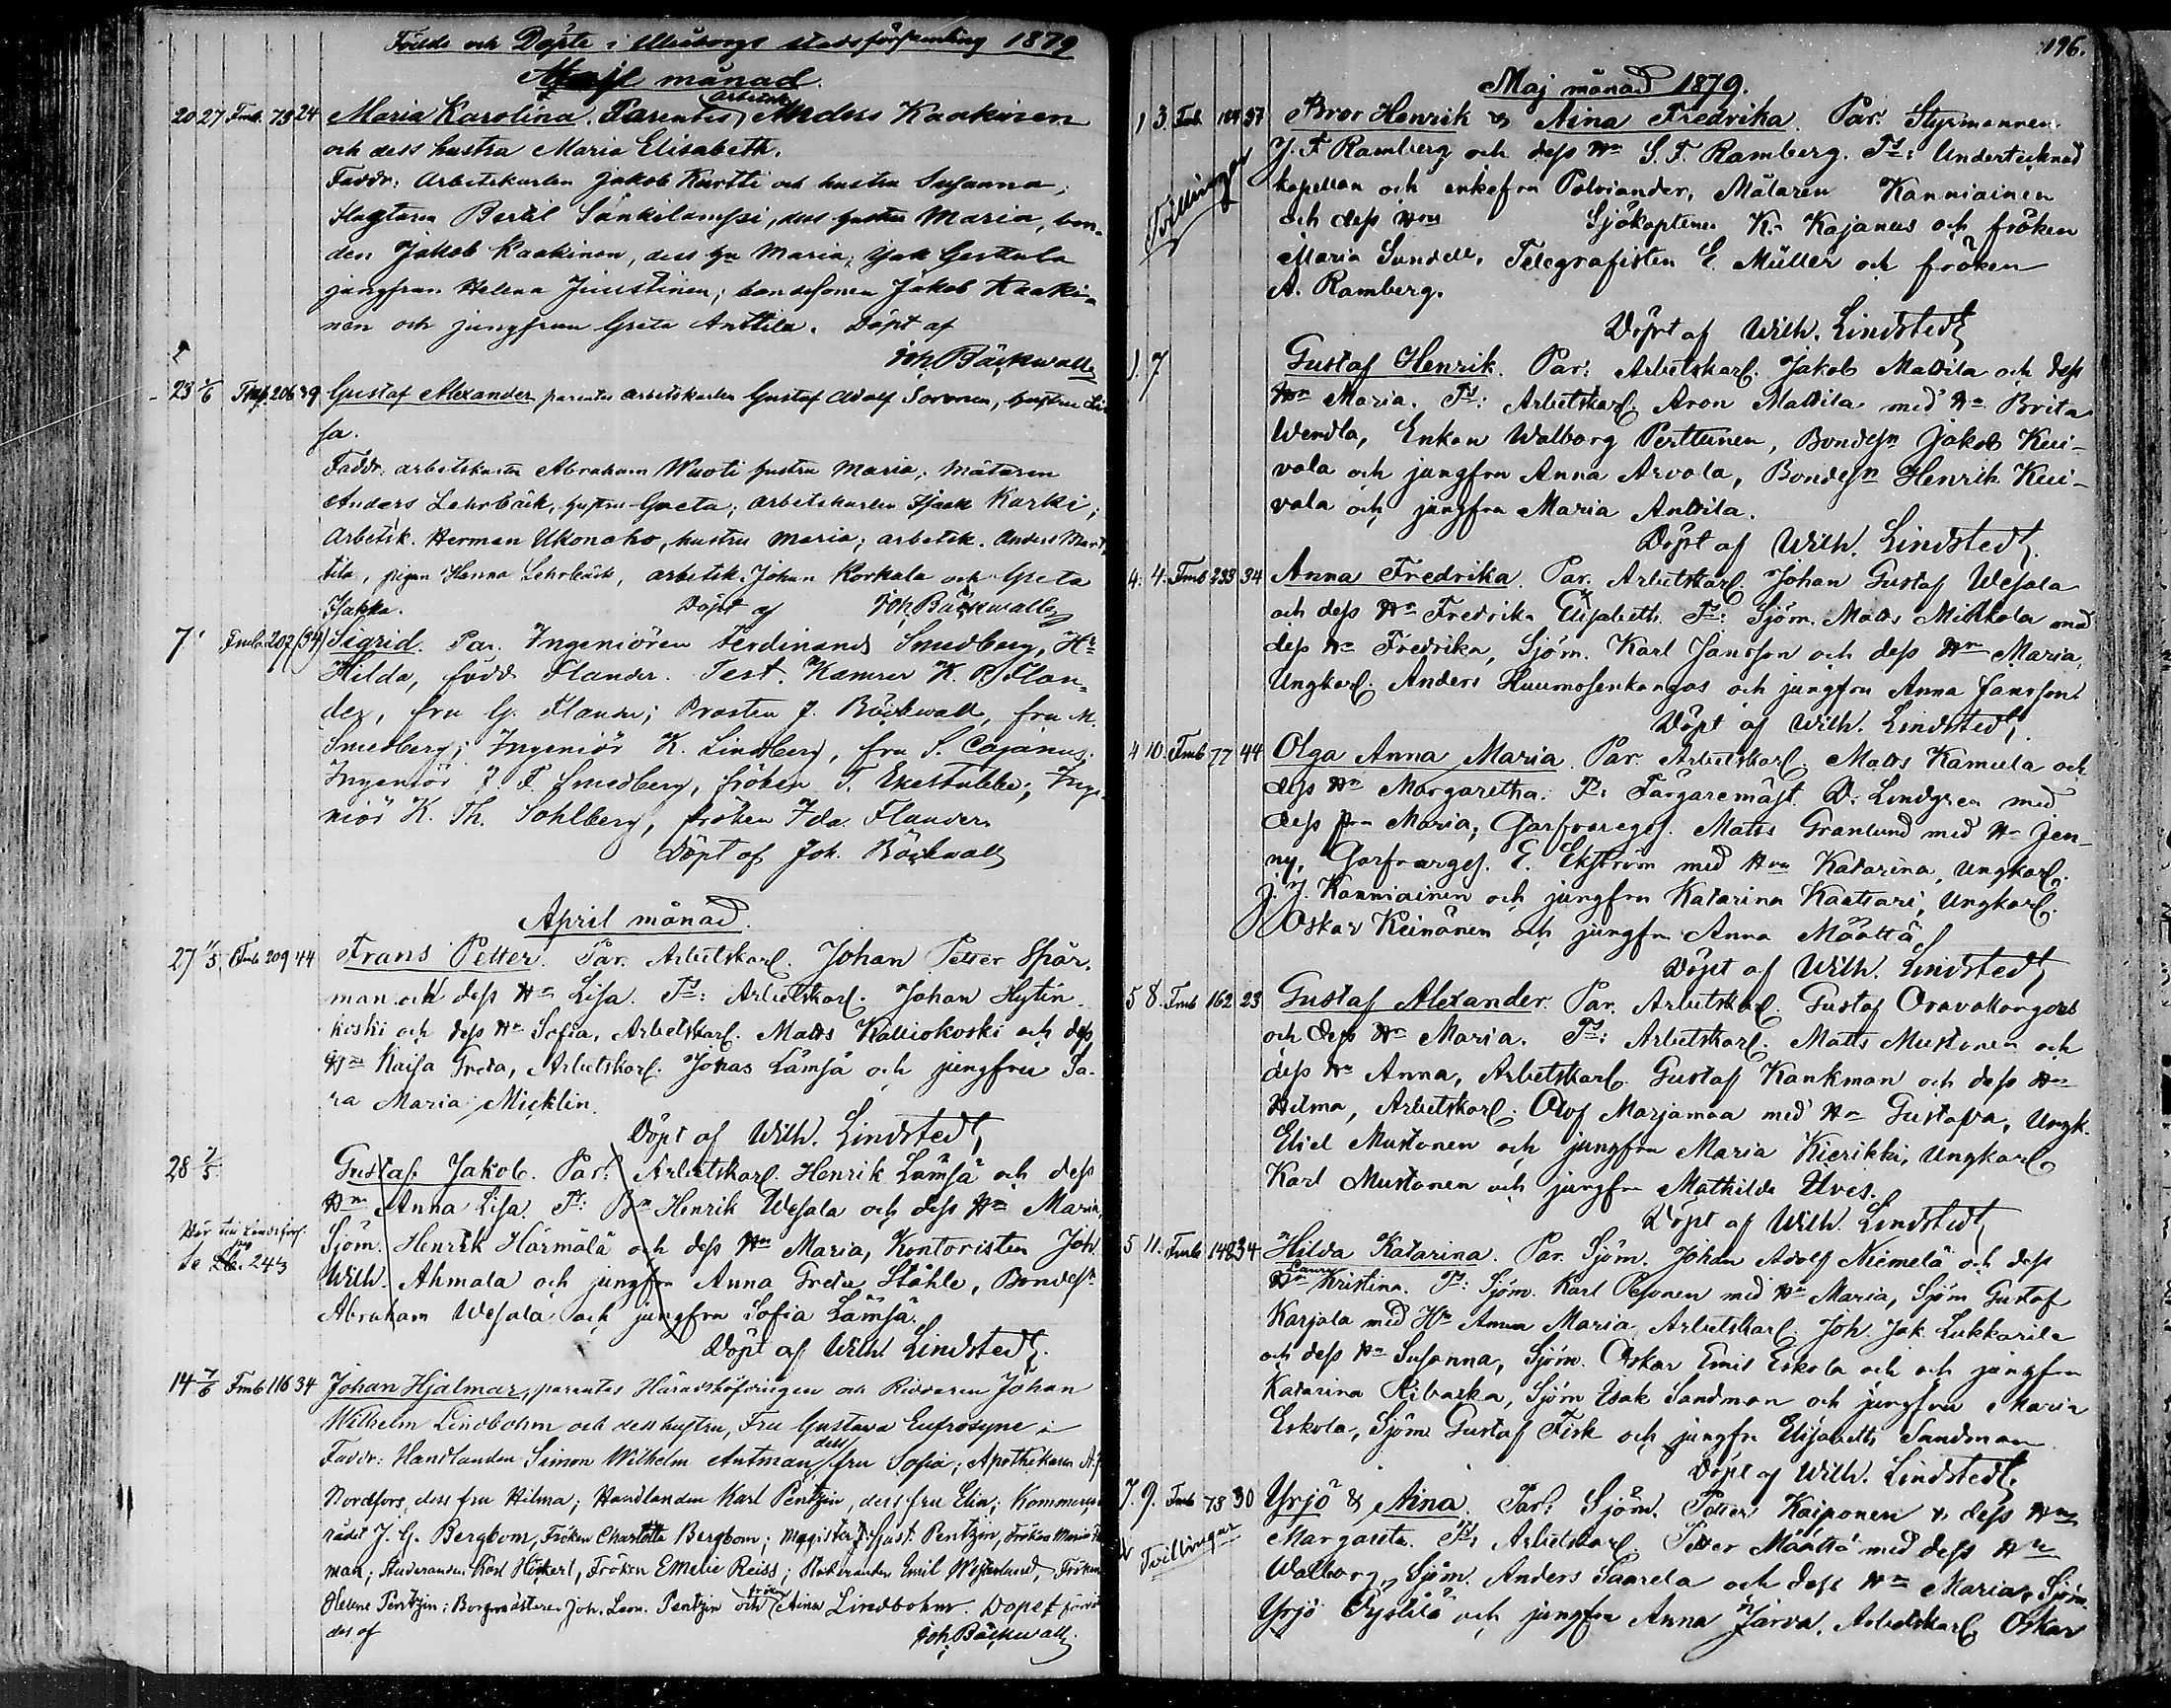 Födde och Döpte i Uleåborgs stadsförsamling 1879
månad.
20 27 Fmb. 73 24 Maria Karolina. Parentes, Arbetsk. Anders Kaakinen
och dess hustru Maria Elisabeth.
Faddr: Arbetskarlen Jakob Kurtti och hustru Susanna;
Slagtaren Bertil Sankilampi, dess hustru Maria, bon-
den Jakob Kaakinen, dess hu Maria;
jungfrun Helena Juustinen; bondesonen Jakob Kaaki-
nen och jungfrun Greta Anttila. Döpt af
Joh. Bäckwall
23 1/6 Fmb. 206 39 Gustaf Alexander, parentes arbetskarlen Gustaf Adolf Soronen, hustru Li
sa.
Faddr: arbetskarlen Abraham Wuoti hustru Maria; målaren
Anders Lehrbäck, hustru Greta; arbetskarlen Isaak Karki;
Arbetsk. Herman Ukonaho, hustru Maria; arbetsk. Anders Mart
tila, pigan Hanna Lehrbäck, arbetsk. Johan Korkala och Greta
Isakka. Döpt af Joh. Bäckwall
7. Fmb. 207 (34) Sigrid. Par. Ingeniören Ferdinand Smedberg, Hu
Hilda, född Flander. Test. Kamrer K. R. Flan-
der, fru G. Flander; Prosten J. Bäckwall, fru M.
Smedberg; Ingeniör K. Lindberg, fru S. Cajanus;
Ingeniör J. F. Smedberg, fröken T. Ekestubbe; Inge-
niör K. Th. Sohlberg, fröken Ida Flander.
Döpt af Joh. Bäckwall
April månad.
27 1/5 Fmb 209 44 Frans Petter. Par. Arbetskarl. Johan Petter Spar-
man och dess Hu Lisa. Ts: Arbetskarl. Johan Hytin-
koski och dess Hu Sofia, Arbetskarl. Matts Kalliokoski och dess
Hu Kaisa Greta, Arbetskarl. Jonas Lämsä och jungfru Sa-
ra Maria Micklin.
Döpt af Wilh. Lindstedt
28 2/5 Gustaf Jakob. Par: Arbetskarl. Henrik Lämsä och dess
Hu Anna Lisa. Ts: Bn Henrik Wesala och dess Hu Maria,
Hör till Landsförs. Sjöm. Henrik Härmälä och dess Hu Maria, Kontoristen Joh.
se pag. 243 Wilh. Ahmala och jungfru Anna Greta Ståhle, Bondesn
Abraham Wesala och jungfru Sofia Lämsä.
Döpt af Wilh. Lindstedt.
14 7/6 Fmb 116 34 Johan Hjalmar, parentes Häradshöfdingen och Riddaren Johan
Wilhelm Lindbohm och dess hustru, Fru Gustava Eufrosyne
Faddr: Handlanden Simon Wilhelm Antman, dess fru Sofia; Apothekaren A.
Nordfors, dess fru Hilma; Handlanden Karl Pentzin, dess fru Elin; Kommerse
rådet J. G. Bergbom, Fröken Charlotta Bergbom; Magister Gust. Pentzin, Fröken Maria
man; Studeranden Karl Höckert, Fröken Emelie Reiss; Studeranden Emil Westerlund, Fröken
Helene Pentzin; Borgmästaren Joh. Leon. Pentzin och fröken Aina Lindbohm. Dopet förrät-
des af Joh. Bäckwall
196.
Maj månad 1879.
1 3. Fmb. 37 Bror Henrik & Aina Fredrika. Par: Styrmannen
J. F. Ramberg och dess Hu S. F. Ramberg. Ts: Undertecknad
Tvillingar kapellan och enkefru Polviander, Målaren Kanniainen
och dess Hu Sjökaptenen K. Kajanus och fröken
Maria Sundell, Telegrafisten E. Müller och fröken
A. Ramberg.
Döpt af Wilh. Lindstedt
1. 7 Gustaf Henrik. Par: Arbetskarl. Jakob Mattila och dess
Hu Maria. Ts: Arbetskarl. Aron Mattila med Hu Brita
Wendla, Enkan Walborg Perttunen, Bondesn Jakob Kui-
vala och jungfru Anna Arvola, Bondesn Henrik Kui-
vala och jungfru Maria Anttila.
Döpt af Wilh. Lindstedt.
4. 4. Fmb 233 34 Anna Fredrika. Par. Arbetskarl. Johan Gustaf Wesala
och dess Hu Fredrika Elisabeth. Ts: Sjöm. Matts Mikkola med
dess Hu Fredrika, Sjöm. Karl Jansson och dess Hu Maria,
Ungkarl. Anders Huumosenkangas och jungfru Anna Jansson.
Döpt af Wilh. Lindstedt.
4 10. Fmb 77 44 Olga Anna Maria. Par. Arbetskarl. Matts Kamula och
dess Hu Margaretha. Ts: Färgaremäst. D. Lindgren med
dess fru Maria; Garfvareges. Matts Granlund med Hu Jen-
ny, Garfvarges. E. Ekström med Hu Katarina, Ungkarl.
J. J. Kanniainen och jungfru Katarina Kaattari, Ungkarl.
Oskar Keinänen och jungfru Anna Määttä.
Döpt af Wilh. Lindstedt
5 8. Fmb 162 23 Gustaf Alexander. Par. Arbetskarl. Gustaf Oravakangas
och dess Hu Maria. Ts: Arbetskarl. Matts Mustonen och
dess Hu Anna, Arbetskarl. Gustaf Kankman och dess Hu
Hilma, Arbetskarl. Olof Marjamaa med Hu Gustava, Ungk.
Eliel Mustonen och jungfru Maria Kierikki, Ungkarl
Karl Mustonen och jungfru Mathilda Ilves.
Döpt af Wilh. Lindstedt
5 11. Fmb 148 34 Hilda Katarina. Par. Sjöm. Johan Adolf Niemelä och dess
Hu Laura Kristina. Ts: Sjöm. Karl Pesonen med Hu Maria, Sjöm Gustaf
Karjala med Hu Anna Maria, Arbetskarl. Joh. Jak. Lukkarila
och dess Hu Susanna, Sjöm. Oskar Emil Eskola och och jungfru
Katarina Ribaska, Sjöm Isak Sandman och jungfru Maria
Eskola, Sjöm Gustaf Fisk och jungfru Elisabeth Sandman
Döpt af Wilh. Lindstedt.
7. 9. Fmb 73 30 Yrjö & Aina. Par: Sjöm. Petter Kaiponen & dess Hu
Tvillingar Margareta. Ts: Arbetskarl. Petter Määttä med dess Hu
Walborg, Sjöm. Anders Saarela och dess Hu Maria, Sjöm.
Yrjö och jungfru Anna Jarva, Arbetskarl. Oskar